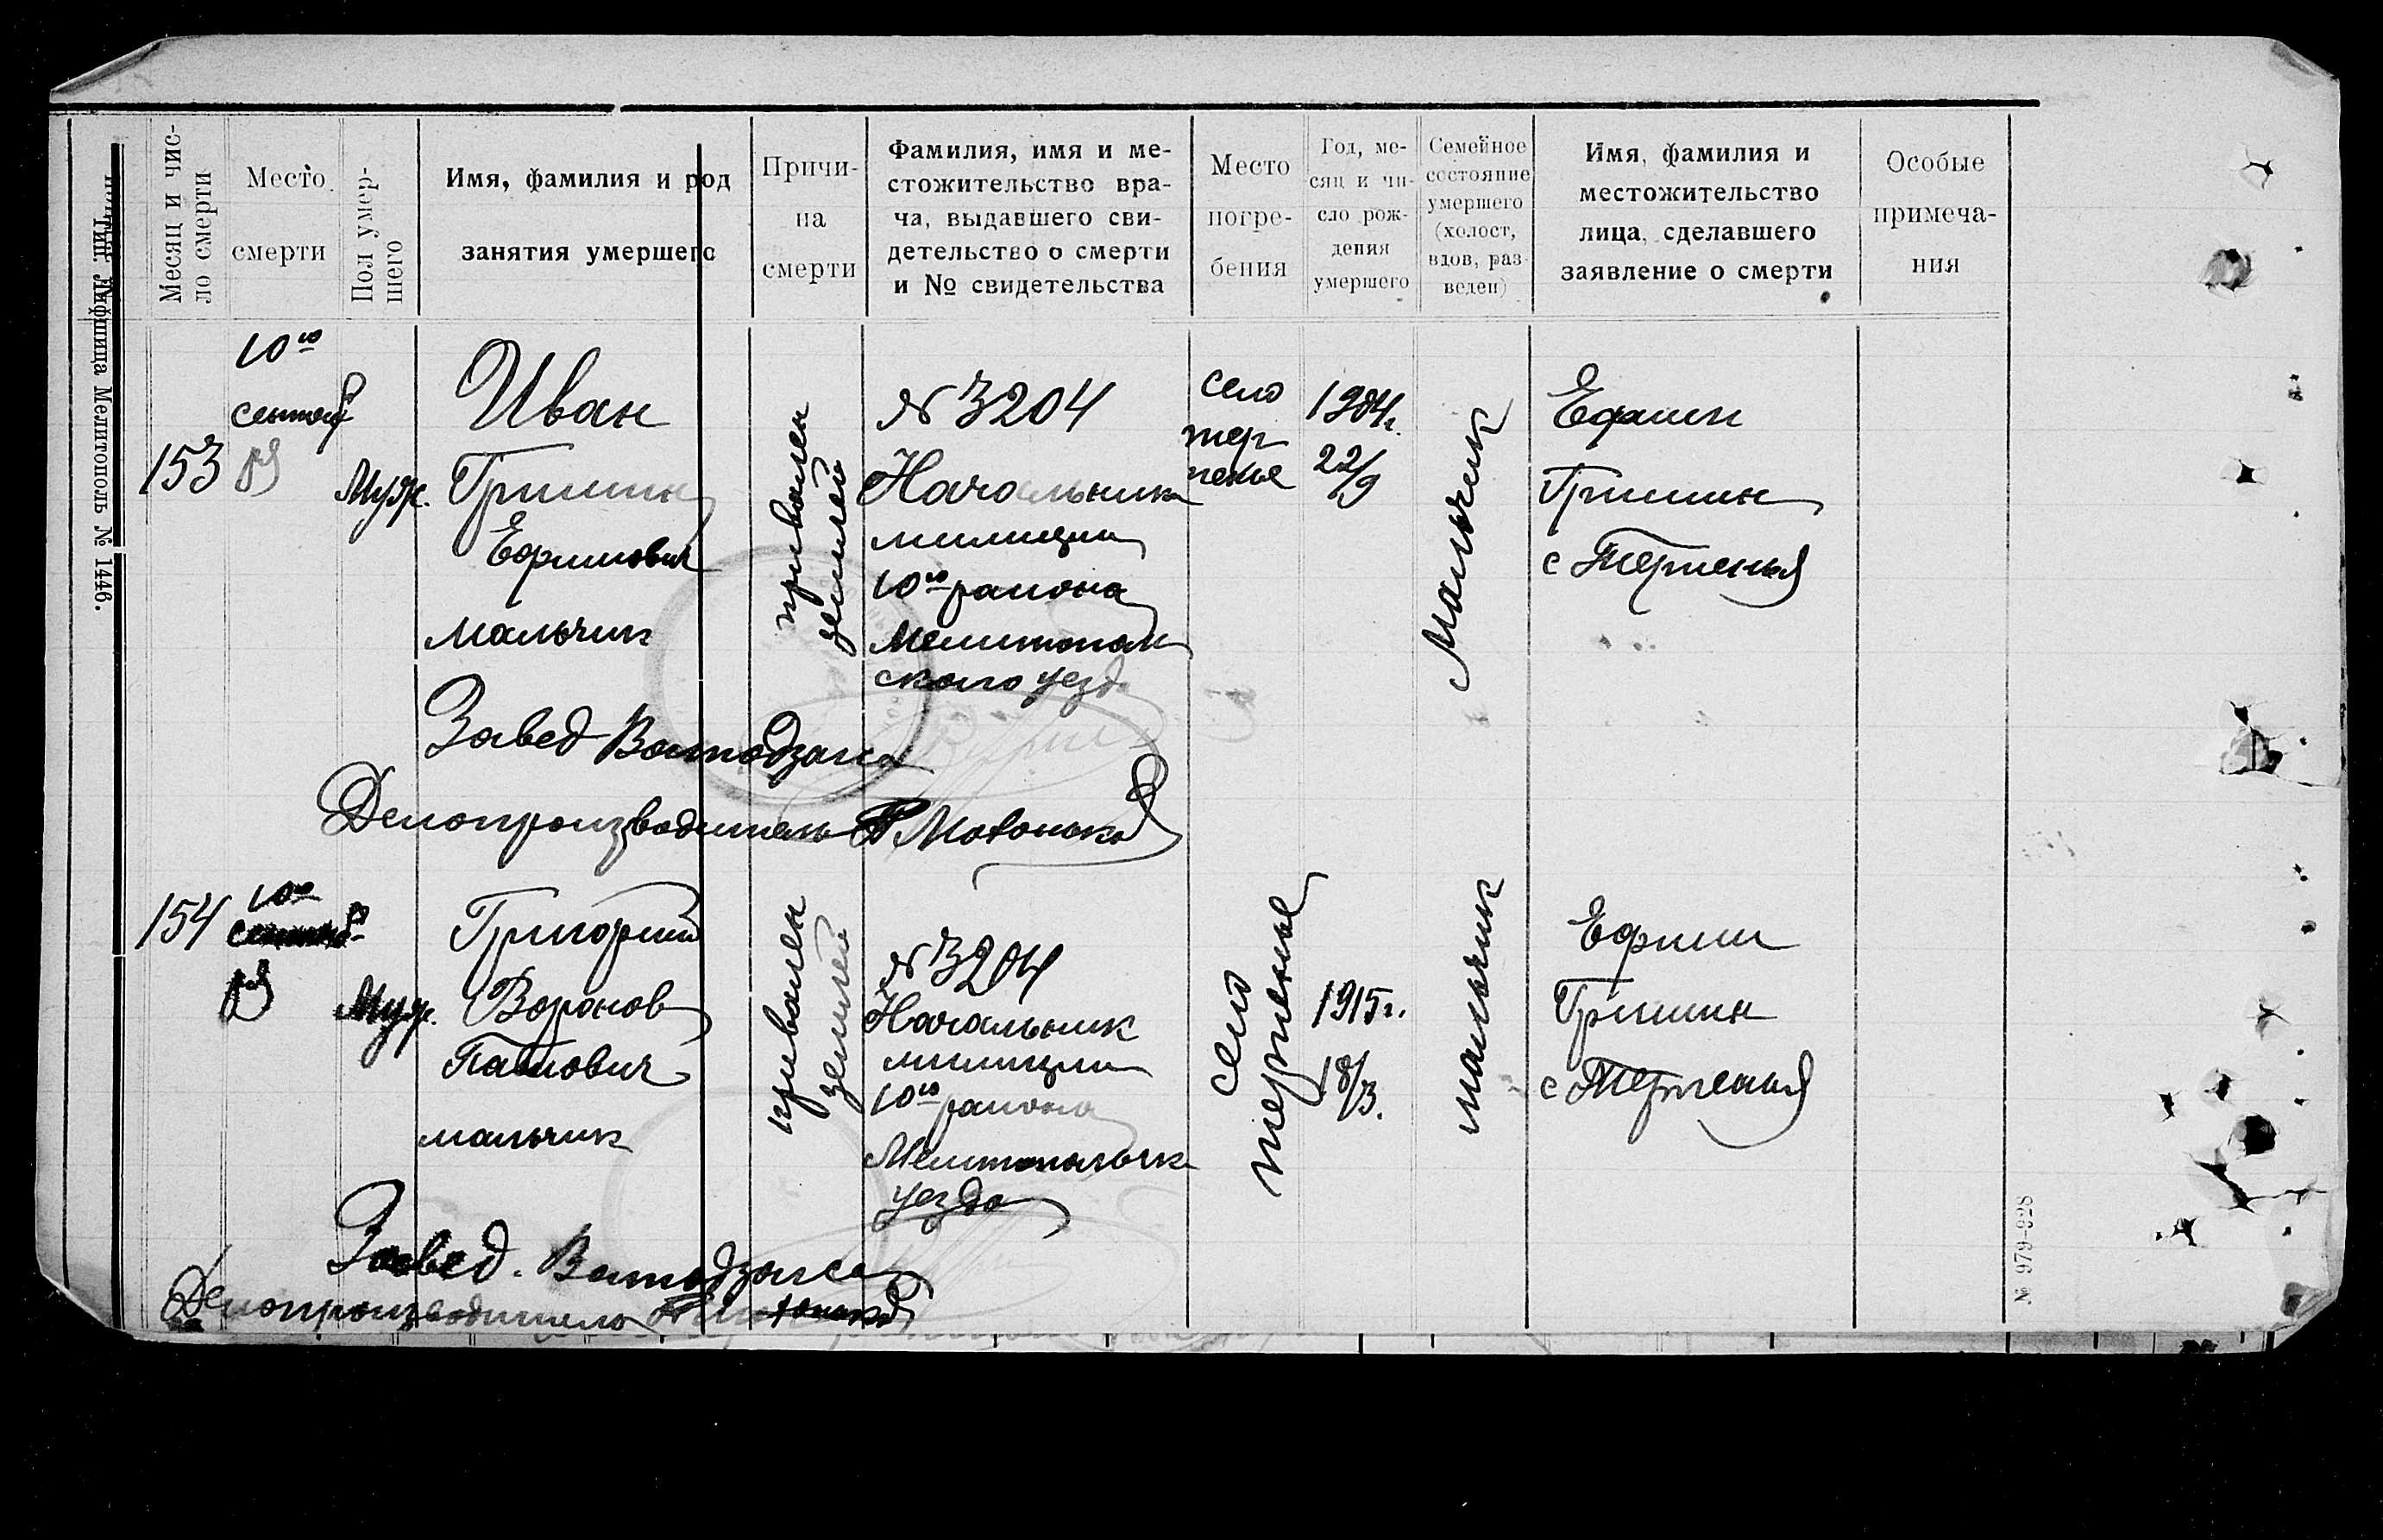 Месяц и чис-
ло смерти
Место
смерти
Пол умер-
шего
Имя, фамилия и род
занятия умершего
Причи-
на
смерти
Фамилия, имя и ме-
стожительство вра-
ча, выдавшего сви-
детельство о смерти
и № свидетельства
Место
погре-
бения
Год, ме-
сяц и чи-
сло рож-
дения
умершего
Семейное
состояние
умершего
(холост,
вдов, раз-
веден)
Имя, фамилия и
местожительство
лица, сделавшего
заявление о смерти
Особые
примеча-
ния
Тип. Лифшица Мелитополь № 1446.
153
10го
Муж.
Иван
Гришин
Ефимович
мальчик
привален
землей
№ 3204
Начальник
милиции
10го района
Мелитополь
ского уезд.
село
тер
пенье
22/9
Мальчик
Ефим
Гришин
с Терпенья
Завед
Делопроизводитель
154
10го
Муж.
Григорий
Воронов
Павлович
мальчик
привален
землей
№ 3204
Начальник
милиции
10го района
Мелитопольск
уезда
село
терпенье
1915г.
18/3.
мальчик
Ефим
Гришин
с Терпенья
Завед.
Делопроизводитель
№ 979-928